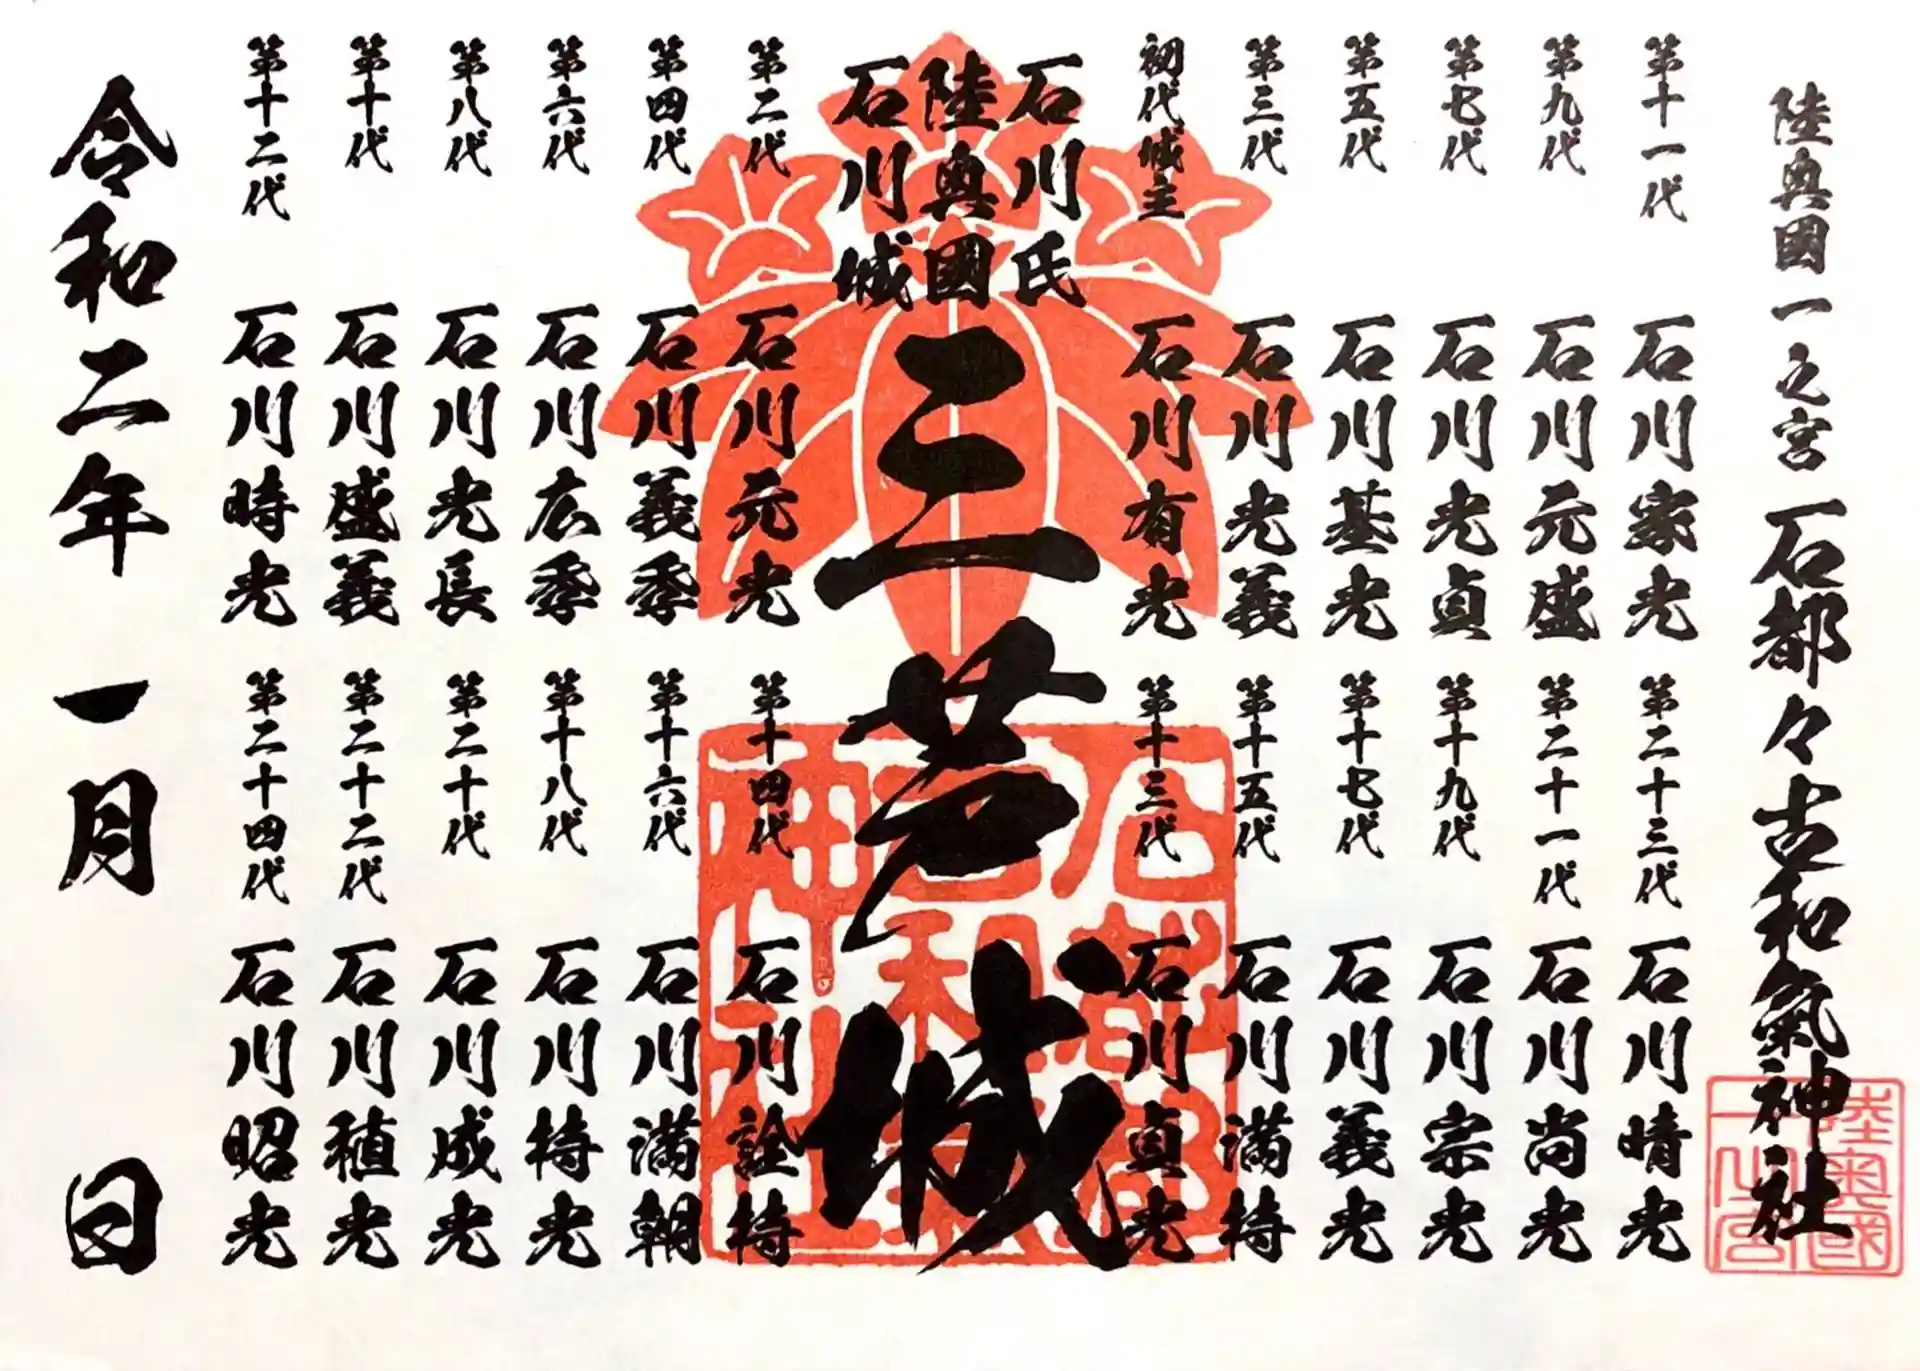 陸奥國一之宮 石都々古和氣神社
陸奥國
一之宮
第十一代 石川家光
第九代 石川元盛
第七代 石川光貞
第五代 石川基光
第三代 石川光義
初代城主 石川有光
第二十三代 石川晴光
第二十一代 石川尚光
第十九代 石川宗光
第十七代 石川義光
第十五代 石川満持
第十三代 石川貞光
石川氏
陸奥國
石川城
三芦城
第二代 石川元光
第四代 石川義季
第六代 石川広季
第八代 石川光長
第十代 石川盛義
第十二代 石川時光
第十四代 石川詮持
第十六代 石川満朝
第十八代 石川持光
第二十代 石川成光
第二十二代 石川稙光
第二十四代 石川昭光
令和二年一月 日